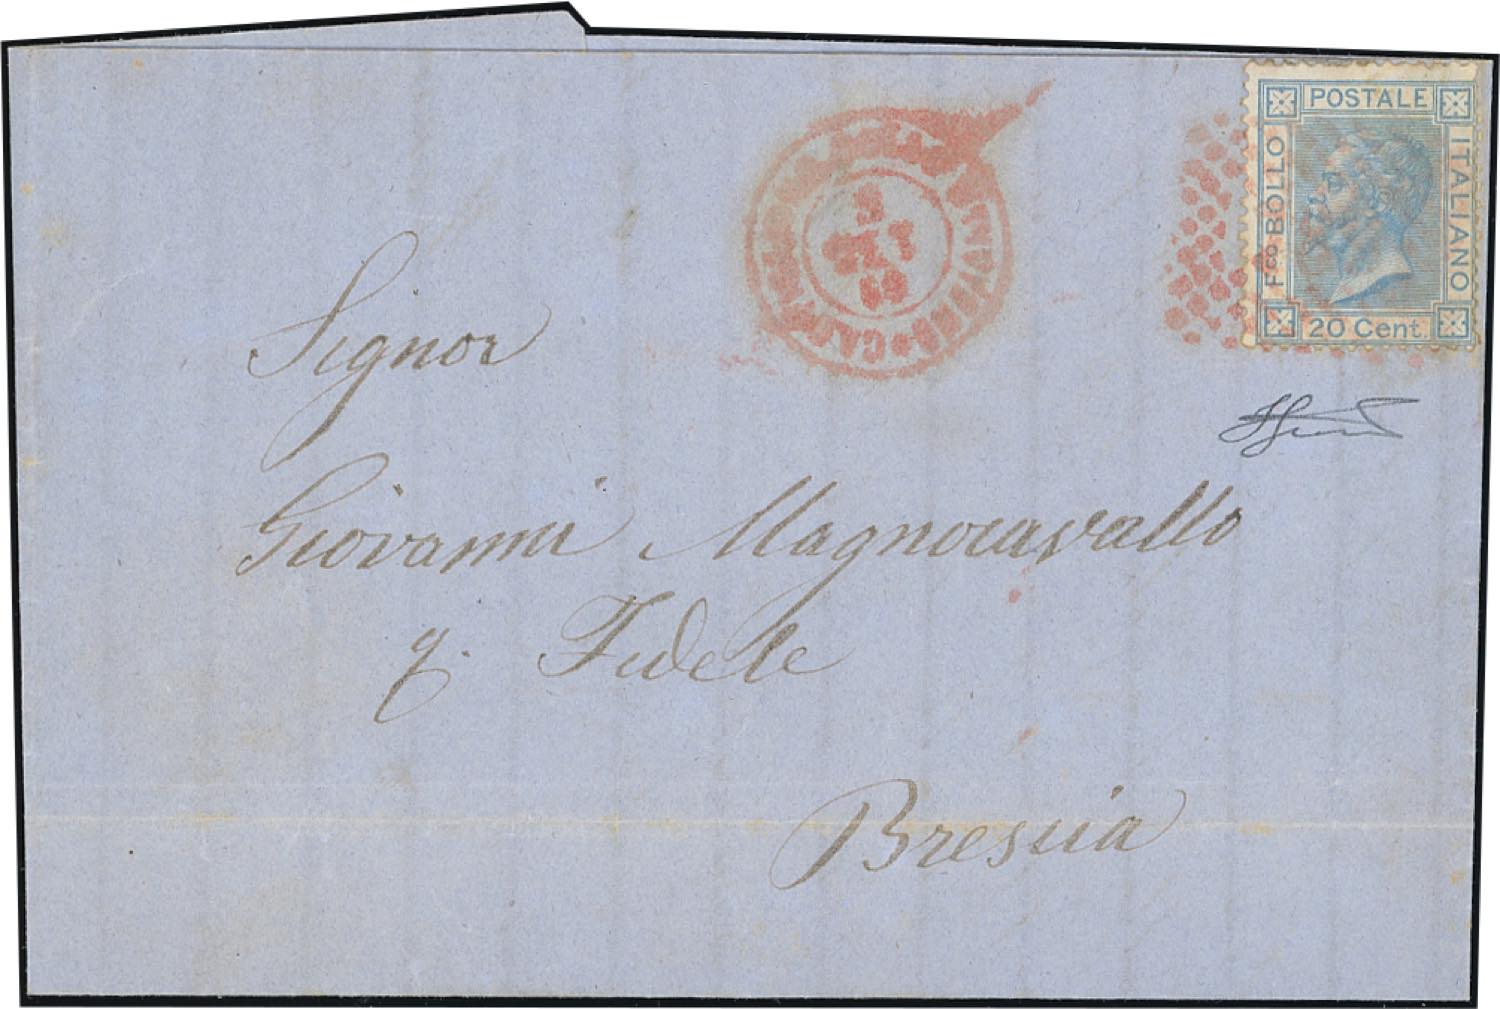 POSTALE
Fco BOLLO
ITALIANO
20 Cent.
69
Signor
Giovanni Magnocavallo
q. Fedele
Brescia